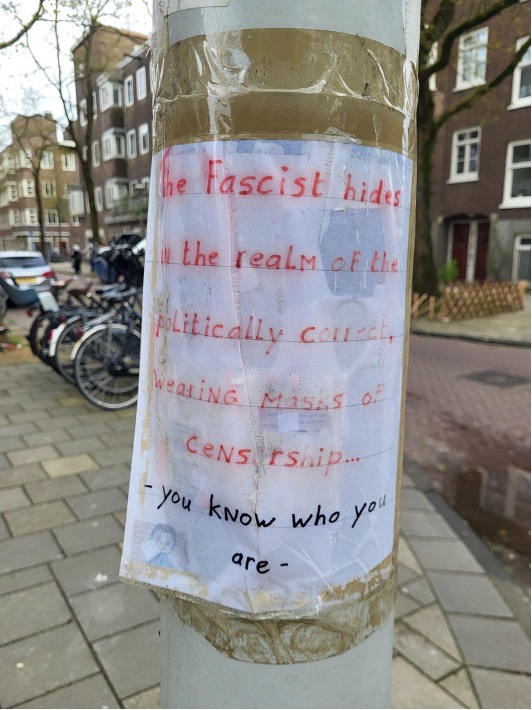 The Fascist hides
in the realm of the
politically correct,
wearing masks of
censorship...
- you know who you
are -